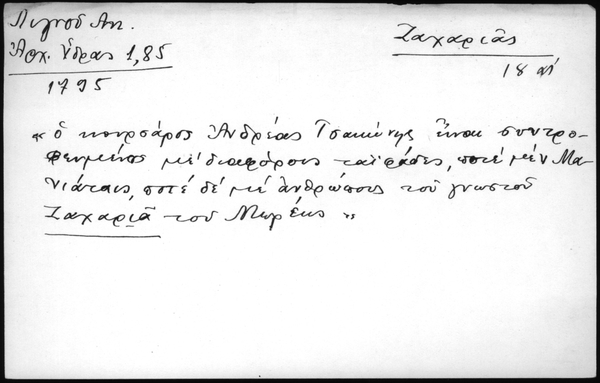 Λιγνοῦ Αντ.
Ἀρχ. Ὕδρας 1,85
1795
Ζαχαριᾶς
18 αἰ
"ὁ κουρσάρος Ἀνδρέας Τσακώνης εἶναι συντρο-
φευμένος μέ διαφόρους ταϊφάδες, ποτέ μέν Μα-
νιάταις, ποτέ δέ μέ ἀνθρώπους τοῦ γνωστοῦ
Ζαχαριᾶ τοῦ Μωρέως"